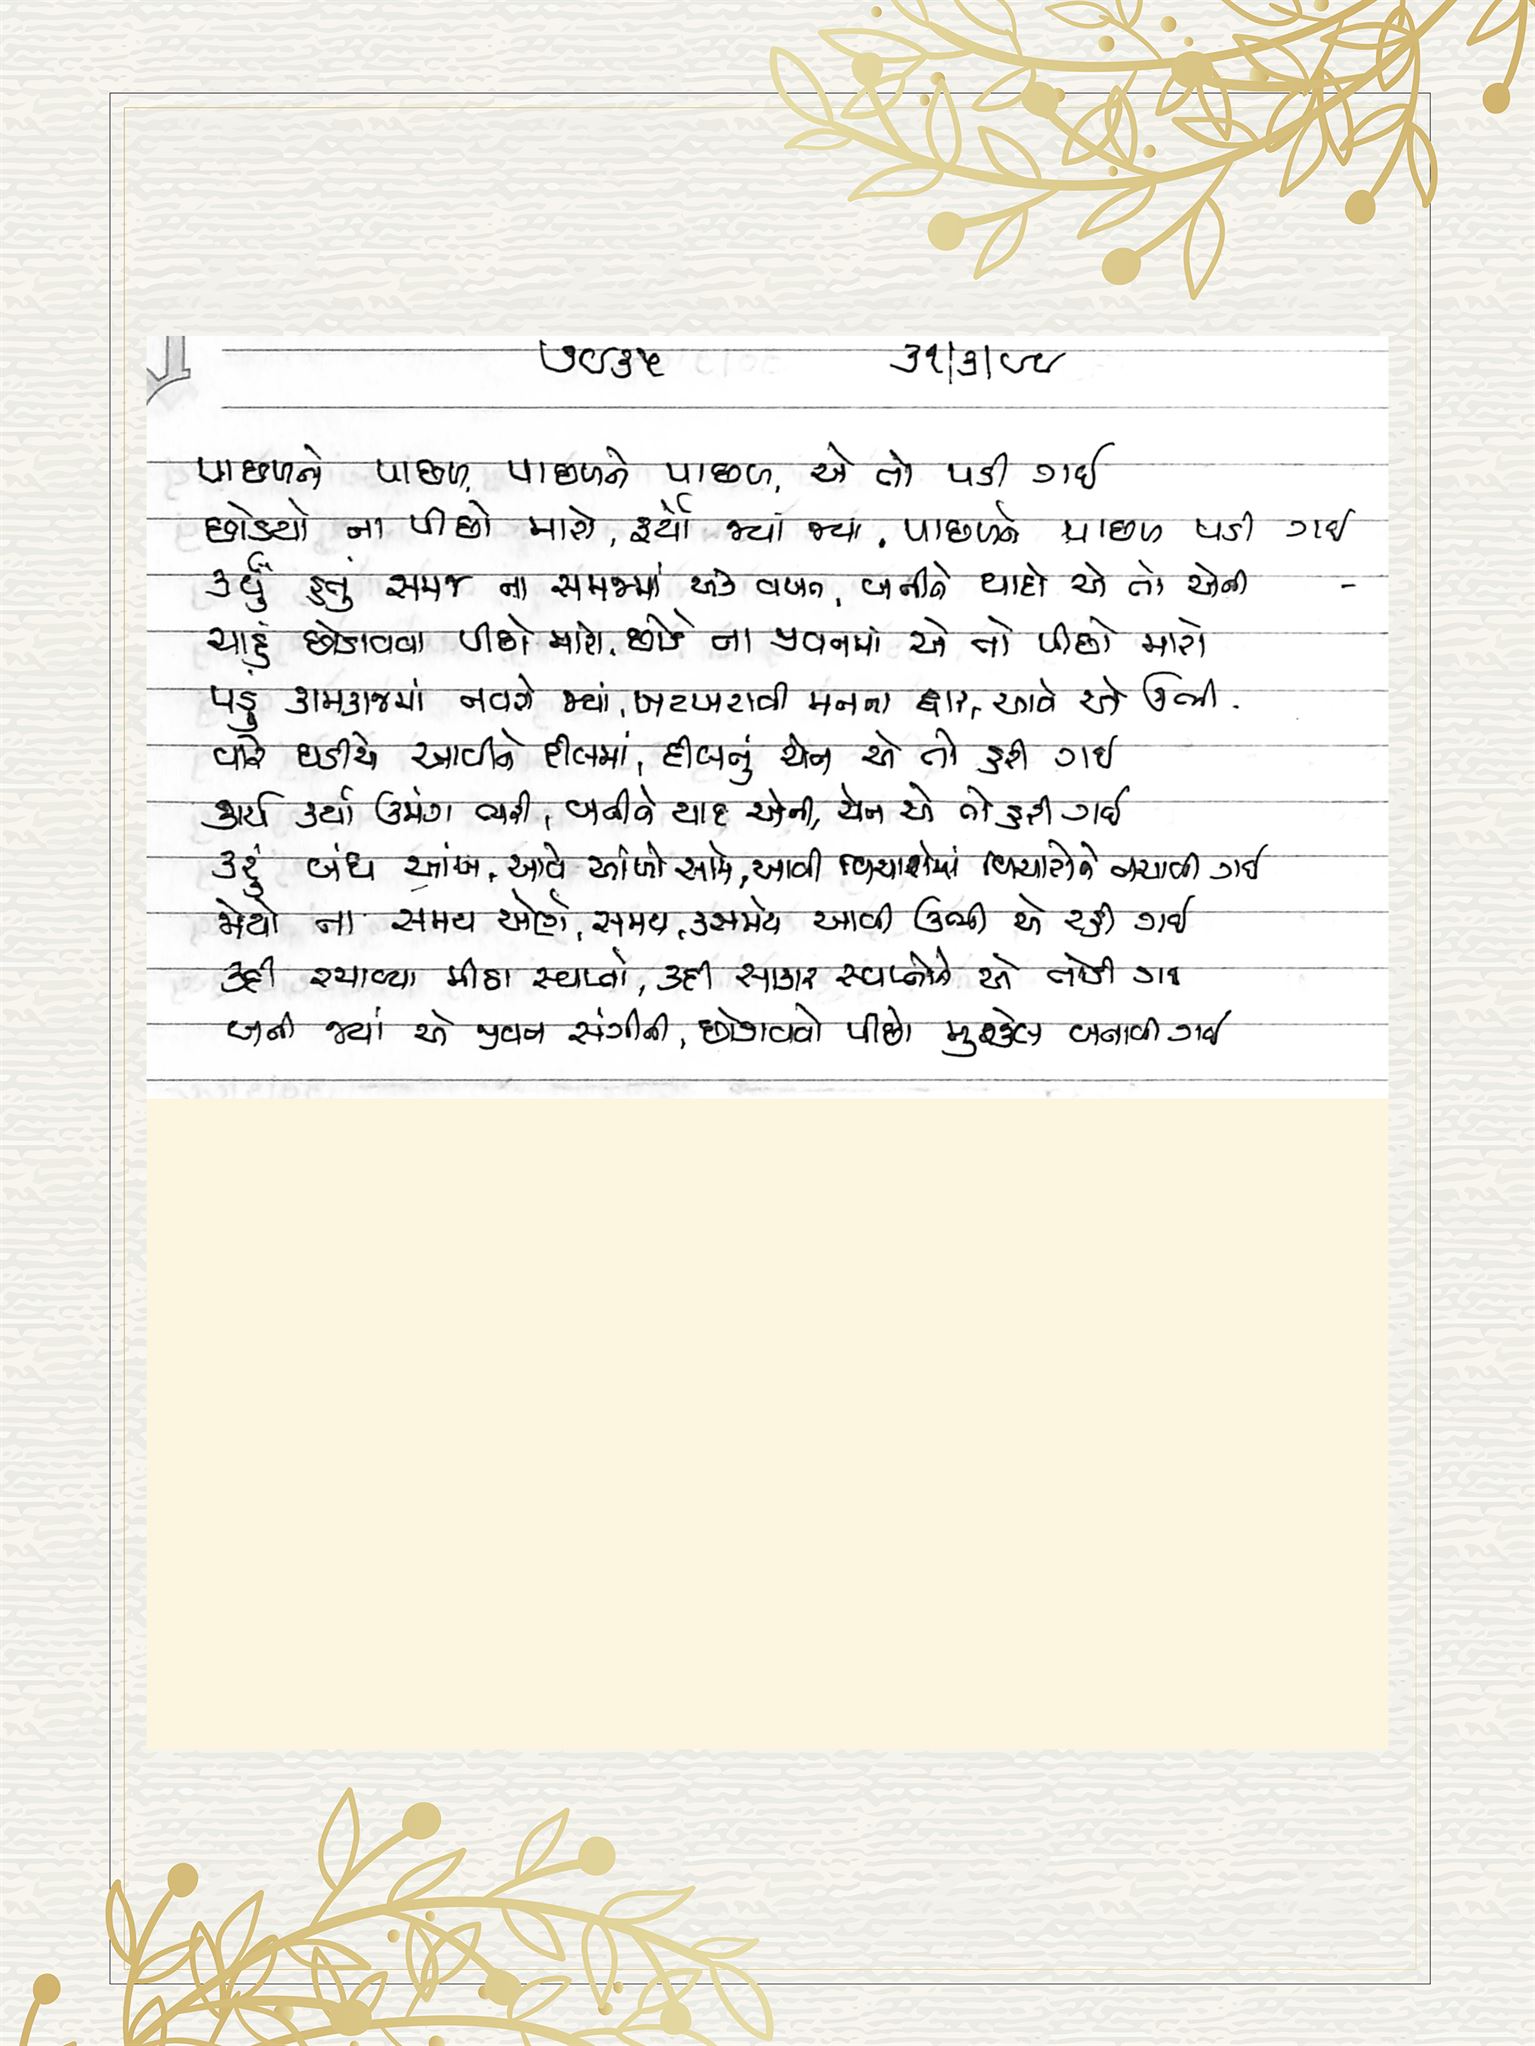 ૭૯૩૫ ૩૧|૩|૯૯
પાછળને પાછળ, પાછળને પાછળ, એ તો પડી ગઈ
છોડયો ના પીછો મારો, ફર્યો જ્યાં જ્યાં, પાછળને પાછળ પડી ગઈ
હતું સમજ ના સમજમાં વજન, બનીને યાદો એ તો એની -
ચાહું છોડાવવા પીછો મારો, છોડે ના જીવનમાં એ તો પીછો મારો
પડું કામકાજમાં નવરો જ્યાં, ખટખટાવી મનના દ્વાર, આવે એ ઉભી.
ઘડીયે આવીને દીલમાં, દીલનું ચેન એ તો હરી ગઈ
કાર્ય કર્યા ઉમંગ ભરી, બનીને યાદ એની, ચેન એ તો હરી ગઈ
કરું બંધ આંખ, આવે આંખો સામે, આવી વિચારોમાં વિચારોને નચાવી ગઈ
જોયો ના સમય એણે, સમય, કસમયે આવી ઉભી એ રહી ગઈ
કદી રચાવ્યા મીઠા સ્વપ્નો, કદી સાકાર સ્વપ્નોને એ તોડી ગઈ
બની જ્યાં એ જીવન સંગીની, છોડાવવો પીછો મુશ્કેલ બનાવી ગઈ